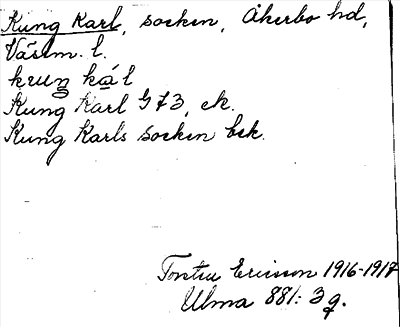 Kung Karl, socken, Åkerbo hd,
Västm. l.
kuŋ ká̱l
Kung Karl G73, ek.
Kung Karls socken bek.
Torsten Ericsson 1916-1917
Ulma 881: 3 q.